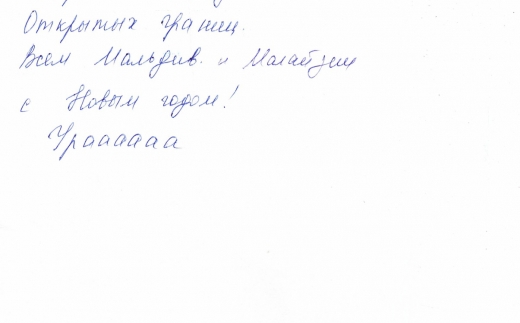 Открытых границ.
Всем Мальдив. и
с Новым годом!
Ураааааа